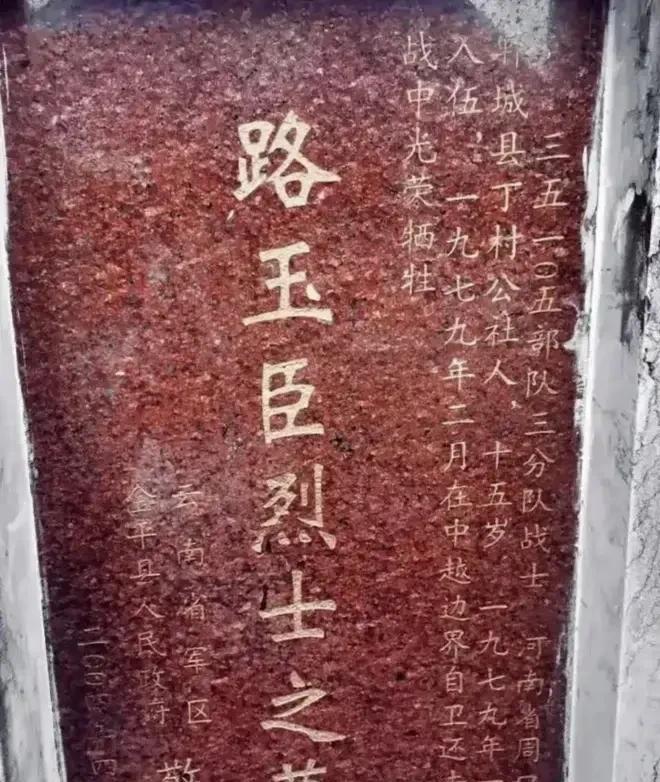 三五一〇五部队三分队战士 河南省周口
郸城县丁村公社人，十五岁 一九七九年一
入伍：一九七九年二月在中越边界自卫还击
战中光荣牺牲
路玉臣烈士之墓
云南省军区
金平县人民政府
敬
二〇〇四年四